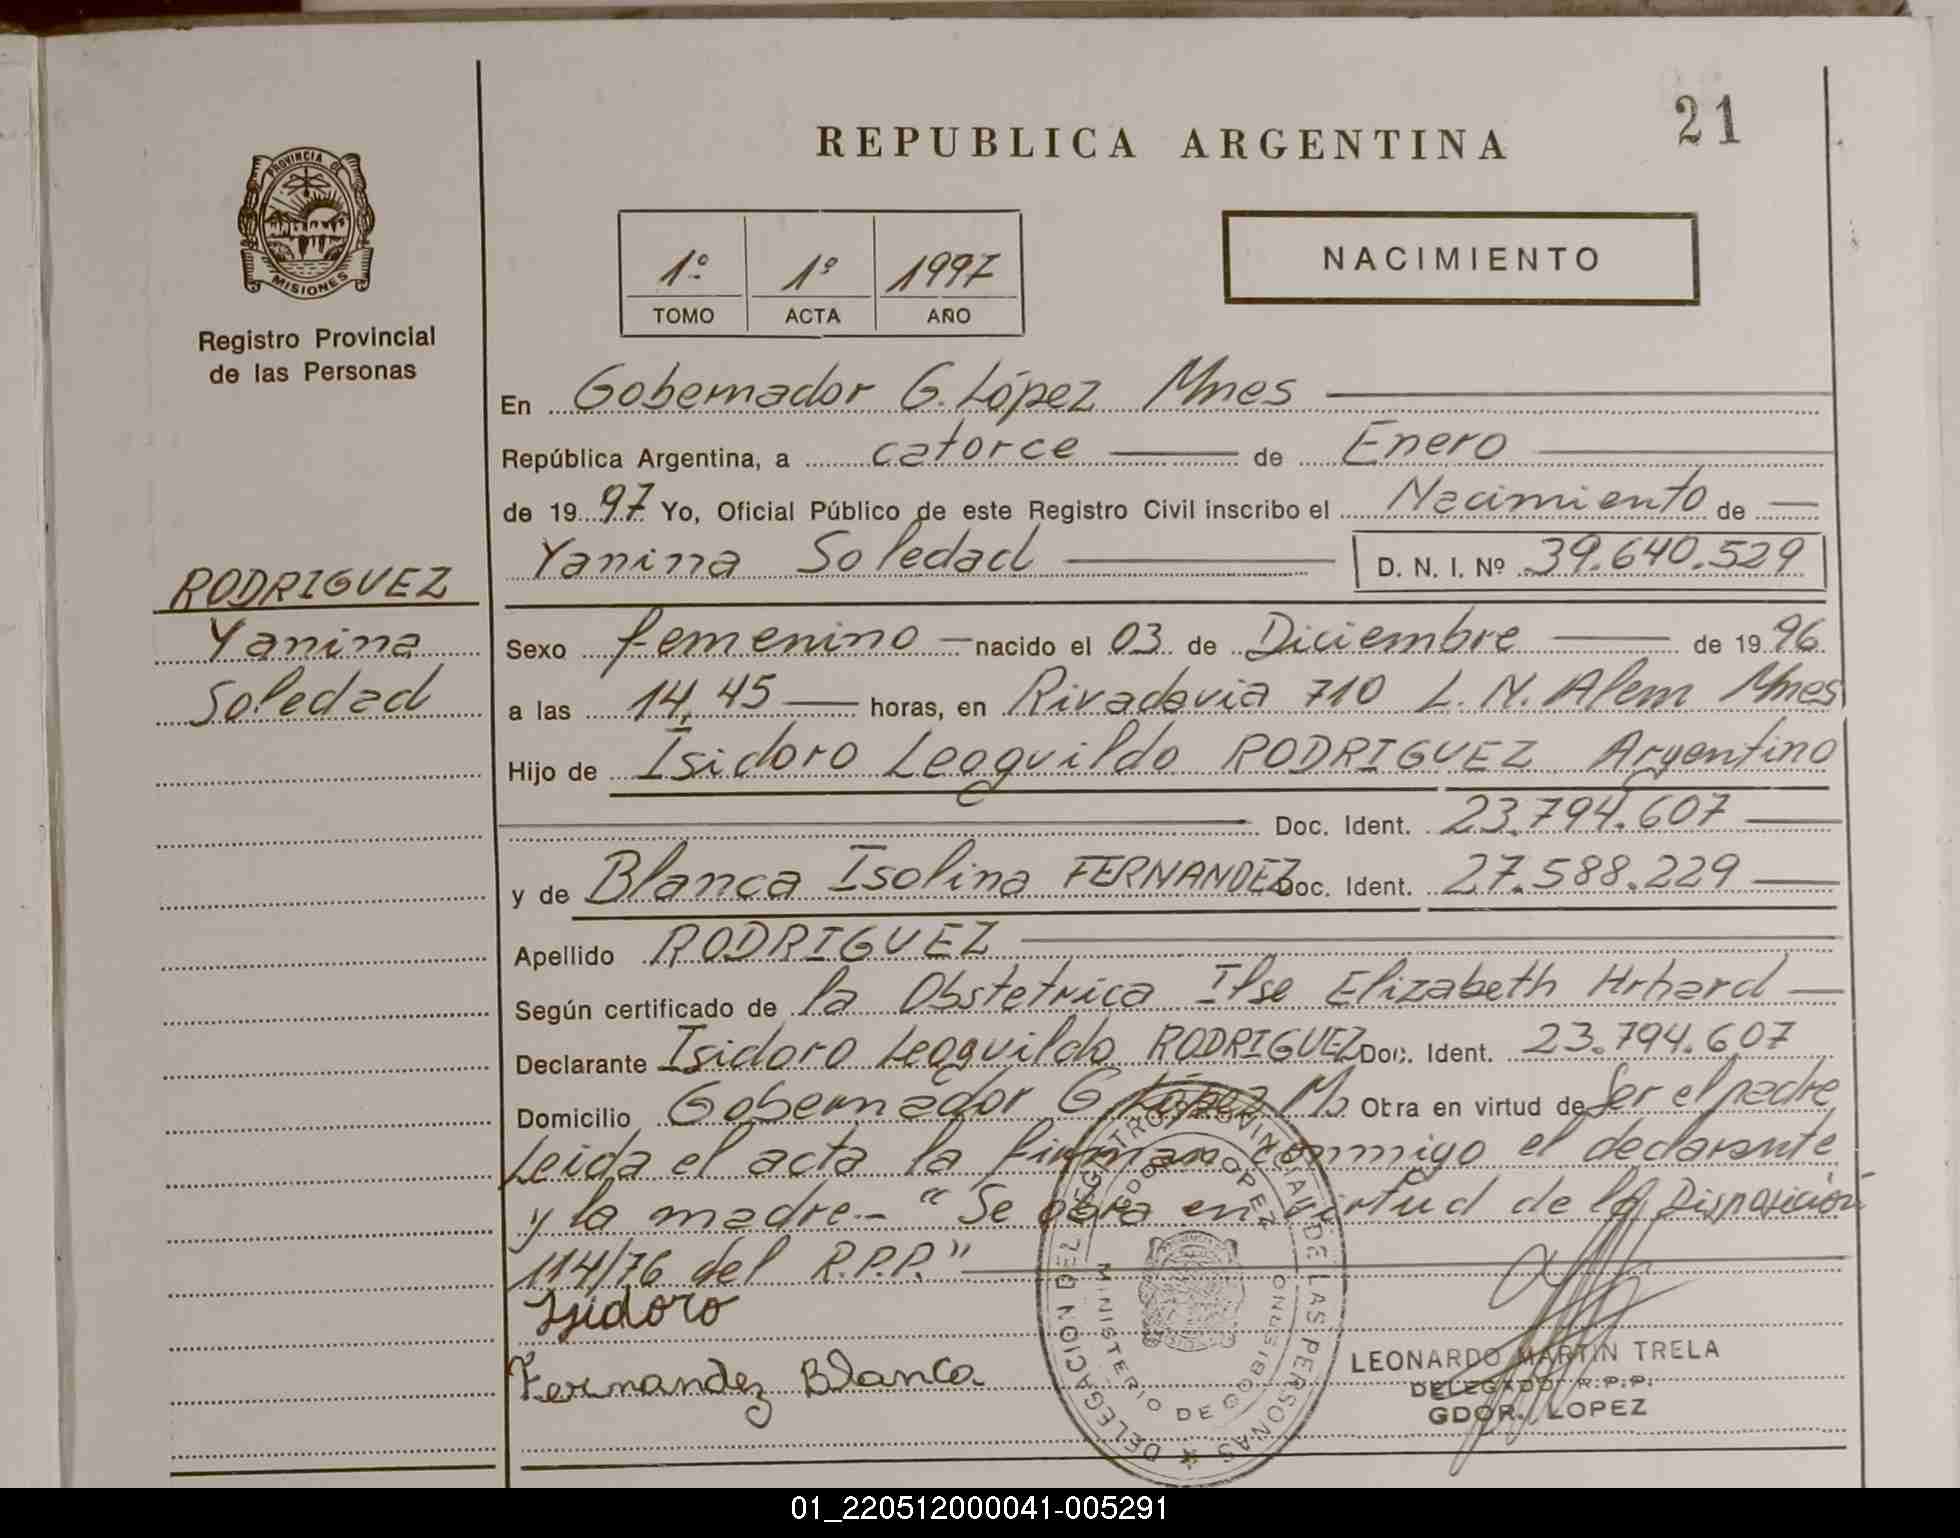 21
REPUBLICA ARGENTINA
PROVINCIA DE
MISIONES
Registro Provincial
de las Personas
1º 1º 1997
TOMO ACTA AÑO
NACIMIENTO
En Gobernador G. López Mnes
República Argentina, a catorce de Enero
de 1997 Yo, Oficial Público de este Registro Civil inscribo el Nacimiento de
Yanina Soledad D. N. I. Nº 39.640.529
RODRIGUEZ
Yanina
Soledad
Sexo femenino nacido el 03 de Diciembre de 1996
a las 14,45 horas, en Rivadavia 710 L. N. Alem Mnes
Hijo de Isidoro Leoguildo RODRIGUEZ Argentino
Doc. Ident. 23.794.607
y de Blanca Isolina FERNANDEZ Doc. Ident. 27.588.229
Apellido RODRIGUEZ
Según certificado de la Obstetrica Ilse Elizabeth Hrhard
Declarante Isidoro Leoguildo RODRIGUEZ Doc. Ident. 23.794.607
Domicilio Gobernador G López Ms Obra en virtud de Ser el padre
Leida el acta la firman conmigo el declarante
y la madre.- "Se obra en virtud de la Disposición
114/76 del R.P.P."
Isidoro
Fernandez Blanca
DELEGACION DEL REGISTRO PROVINCIAL DE LAS PERSONAS
GDOR. LOPEZ
MINISTERIO DE GOBIERNO
LEONARDO MARTIN TRELA
DELEGADO R.P.P.
GDOR. LOPEZ
01_220512000041-005291